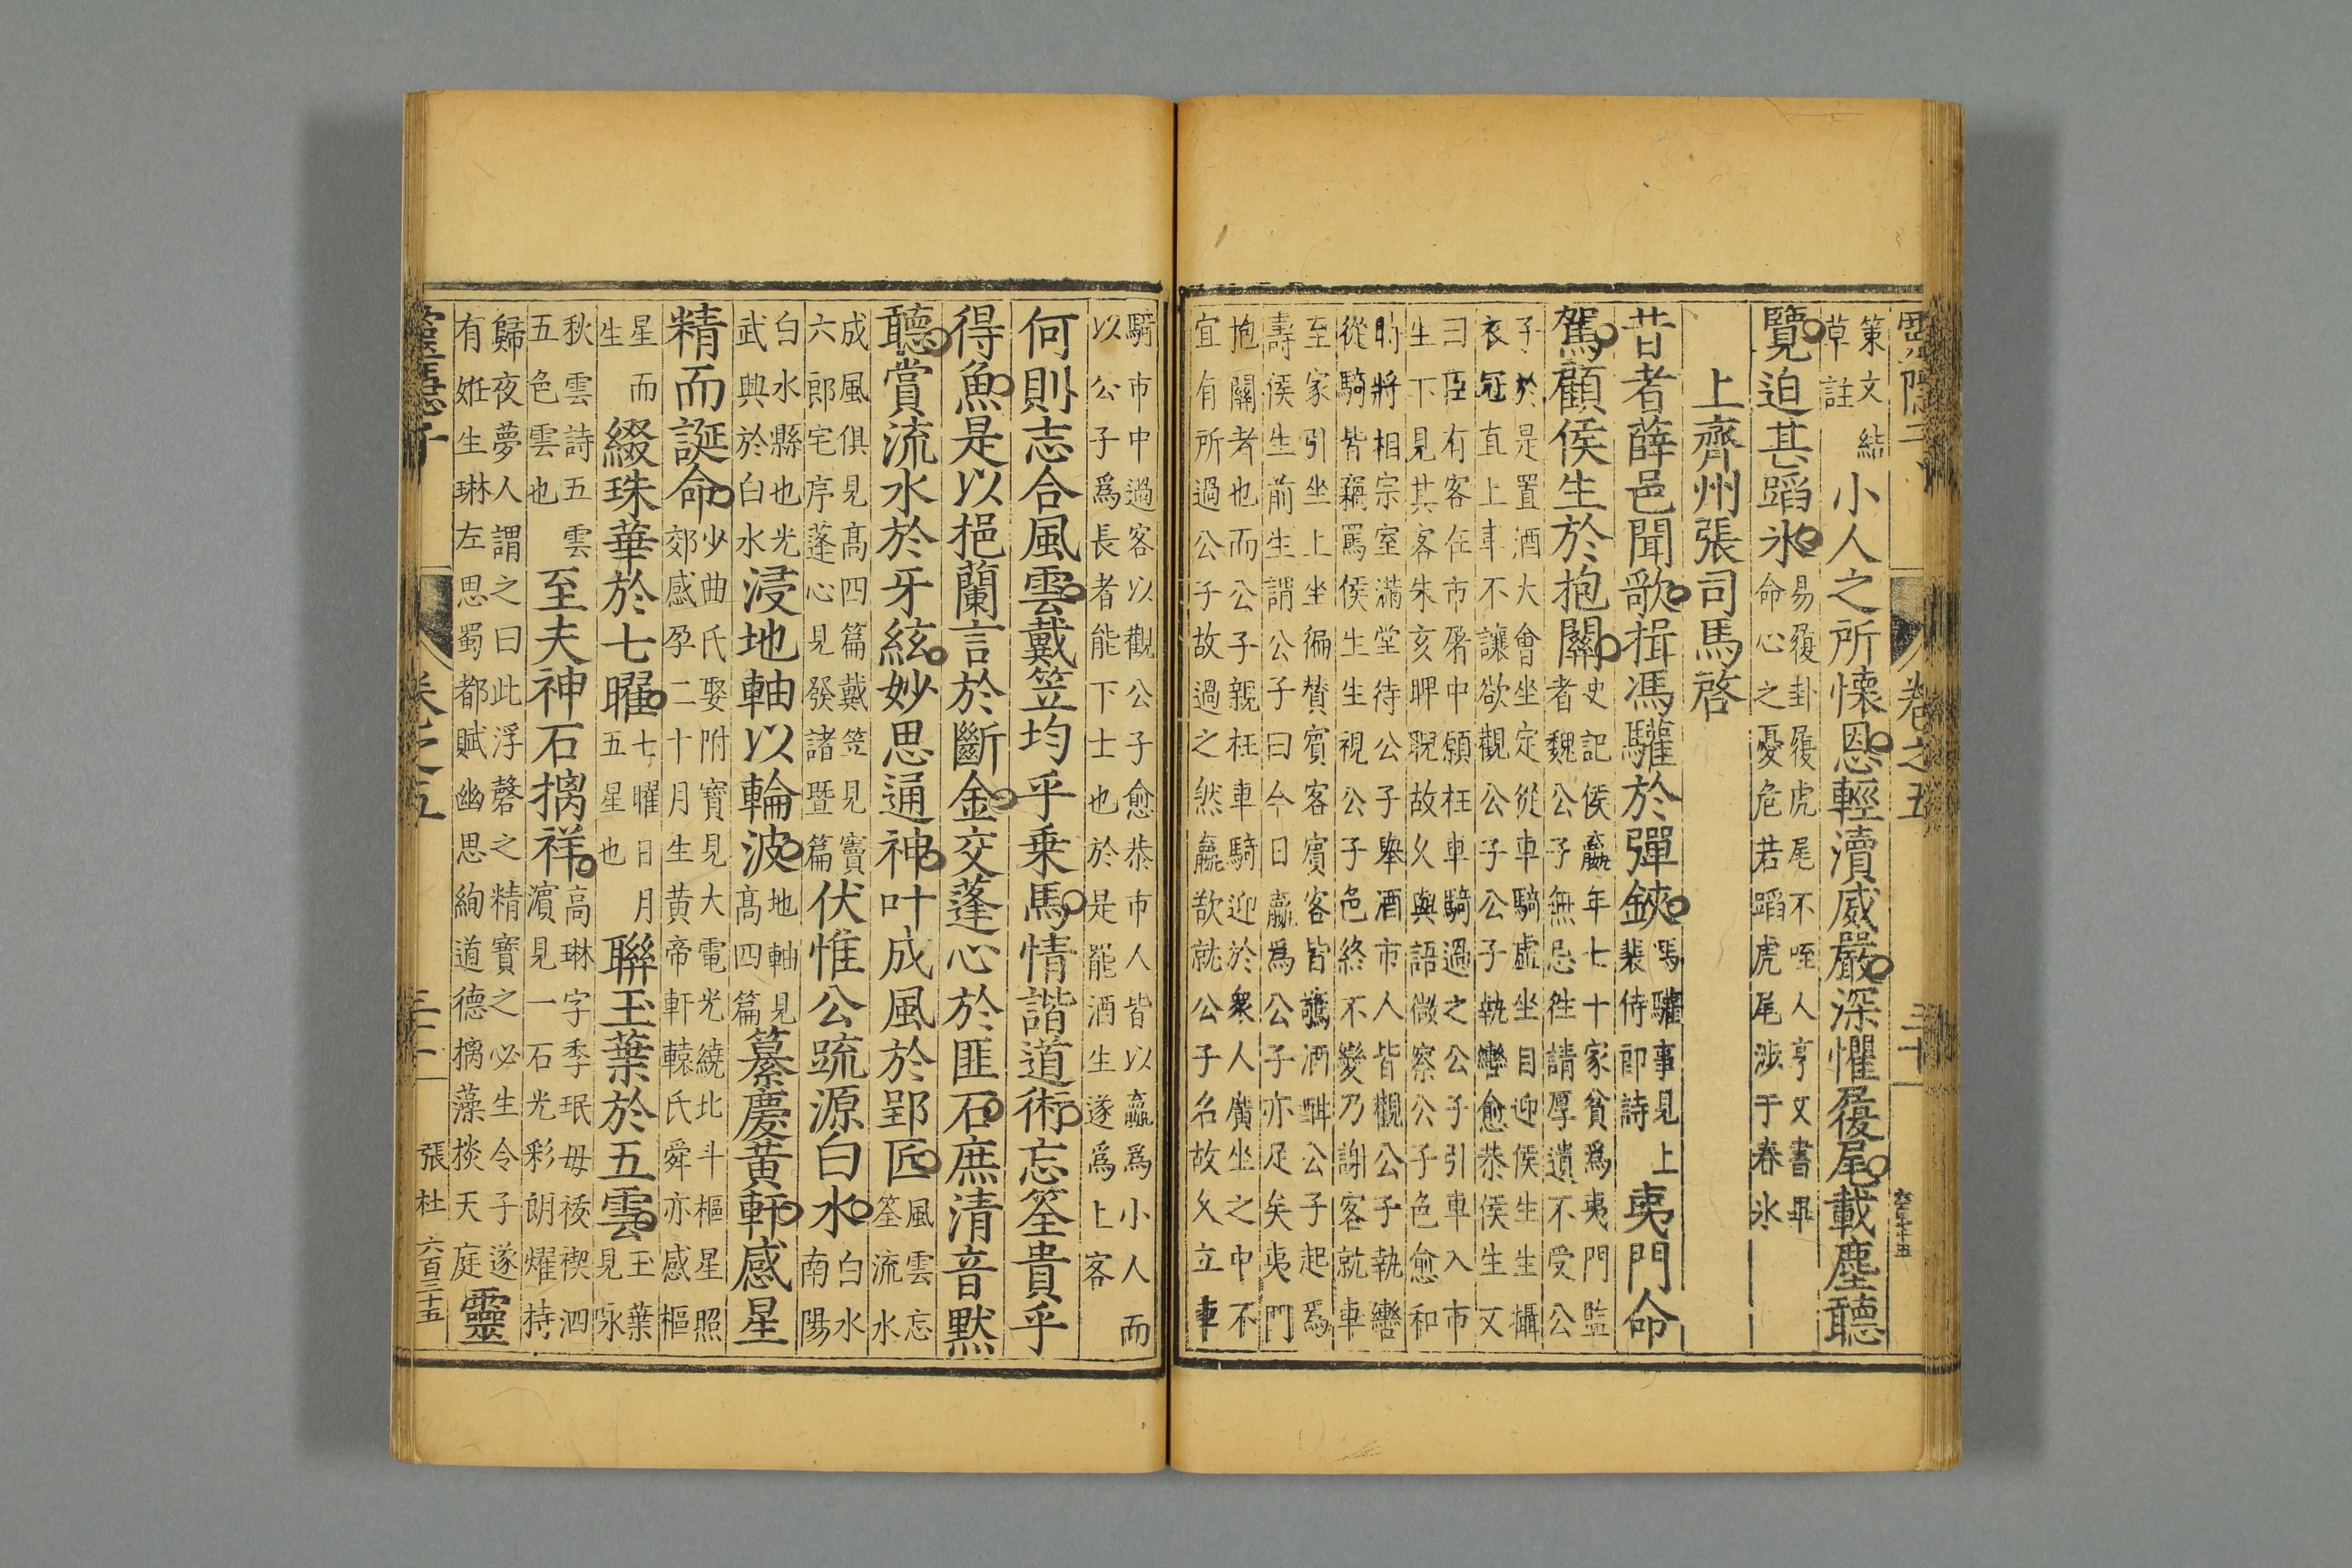 策文結
草註
小人之所懐恩輕瀆威嚴深懼履尾載塵聽
覽迫甚蹈氷
易履卦履虎尾不咥人亨文書畢
命心之憂危若蹈虎尾涉于春氷
上齊州張司馬啓
昔者薛邑聞歌揖馮驩於彈鋏
馮驩事見上
裴侍郎詩
夷門命
駕顧侯生於抱關
史記侯嬴年七十家貧爲夷門監
者魏公子無忌徃請厚遺不受公
子於是置酒大會坐定從車騎虚坐目迎侯生生攝
衣冠直上車不讓欲觀公子公子執轡愈恭侯生又
曰臣有客在市屠中願枉車騎過之公子引車入市
生下見其客朱亥睥睨故乆與語微察公子色愈和
時將相宗室滿堂待公子舉酒市人皆觀公子執轡
從騎皆竊罵侯生生視公子色終不變乃謝客就車
至家引坐上坐徧賛賔客賔客皆驚酒酣公子起爲
壽侯生前生謂公子曰今日嬴爲公子亦足矣夷門
抱關者也而公子親枉車騎迎於衆人廣坐之中不
宜有所過公子故過之然嬴欲就公子名故乆立車
騎市中過客以觀公子愈恭市人皆以嬴爲小人而
以公子爲長者能下士也於是罷酒生遂爲上客
何則志合風雲戴笠均乎乗馬情諧道術忘筌貴乎
得魚是以挹蘭言於斷金交蓬心於匪石庶清音默
聽賞流水於牙絃妙思通神叶成風於郢匠
風雲忘
筌流水
成風俱見高四篇戴笠見竇
六郎宅序蓬心見發諸曁篇
伏惟公䟽源白水
白水
南陽
白水縣也光
武興於白水
浸地軸以輪波
地軸見
高四篇
纂慶黄軒感星
精而誕命
少曲氏娶附寶見大電光繞北斗樞星照
郊感孕二十月生黄帝軒轅氏舜亦感樞
星而
生
綴珠華於七曜
七曜日月
五星也
聯玉葉於五雲
玉葉
見咏
秋雲詩五雲
五色雲也
至夫神石摛祥
高琳字季珉母祓禊泗
濵見一石光彩朗耀持
歸夜夢人謂之曰此浮磬之精寶之必生令子遂
有姙生琳左思蜀都賦幽思絢道德摛藻掞天庭
靈
卷之五
三十
卷之五
張杜
六百三十五